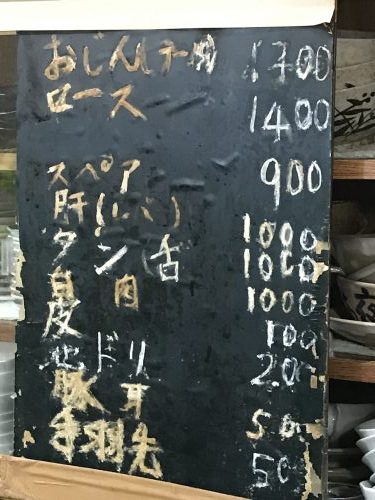 おじんしテー物 1700
ロース 1400
スペア 900
肝(レバ) 1000
タン(舌 1000
白肉 1000
皮 100
セドリ 200
豚耳 50
手羽先 50